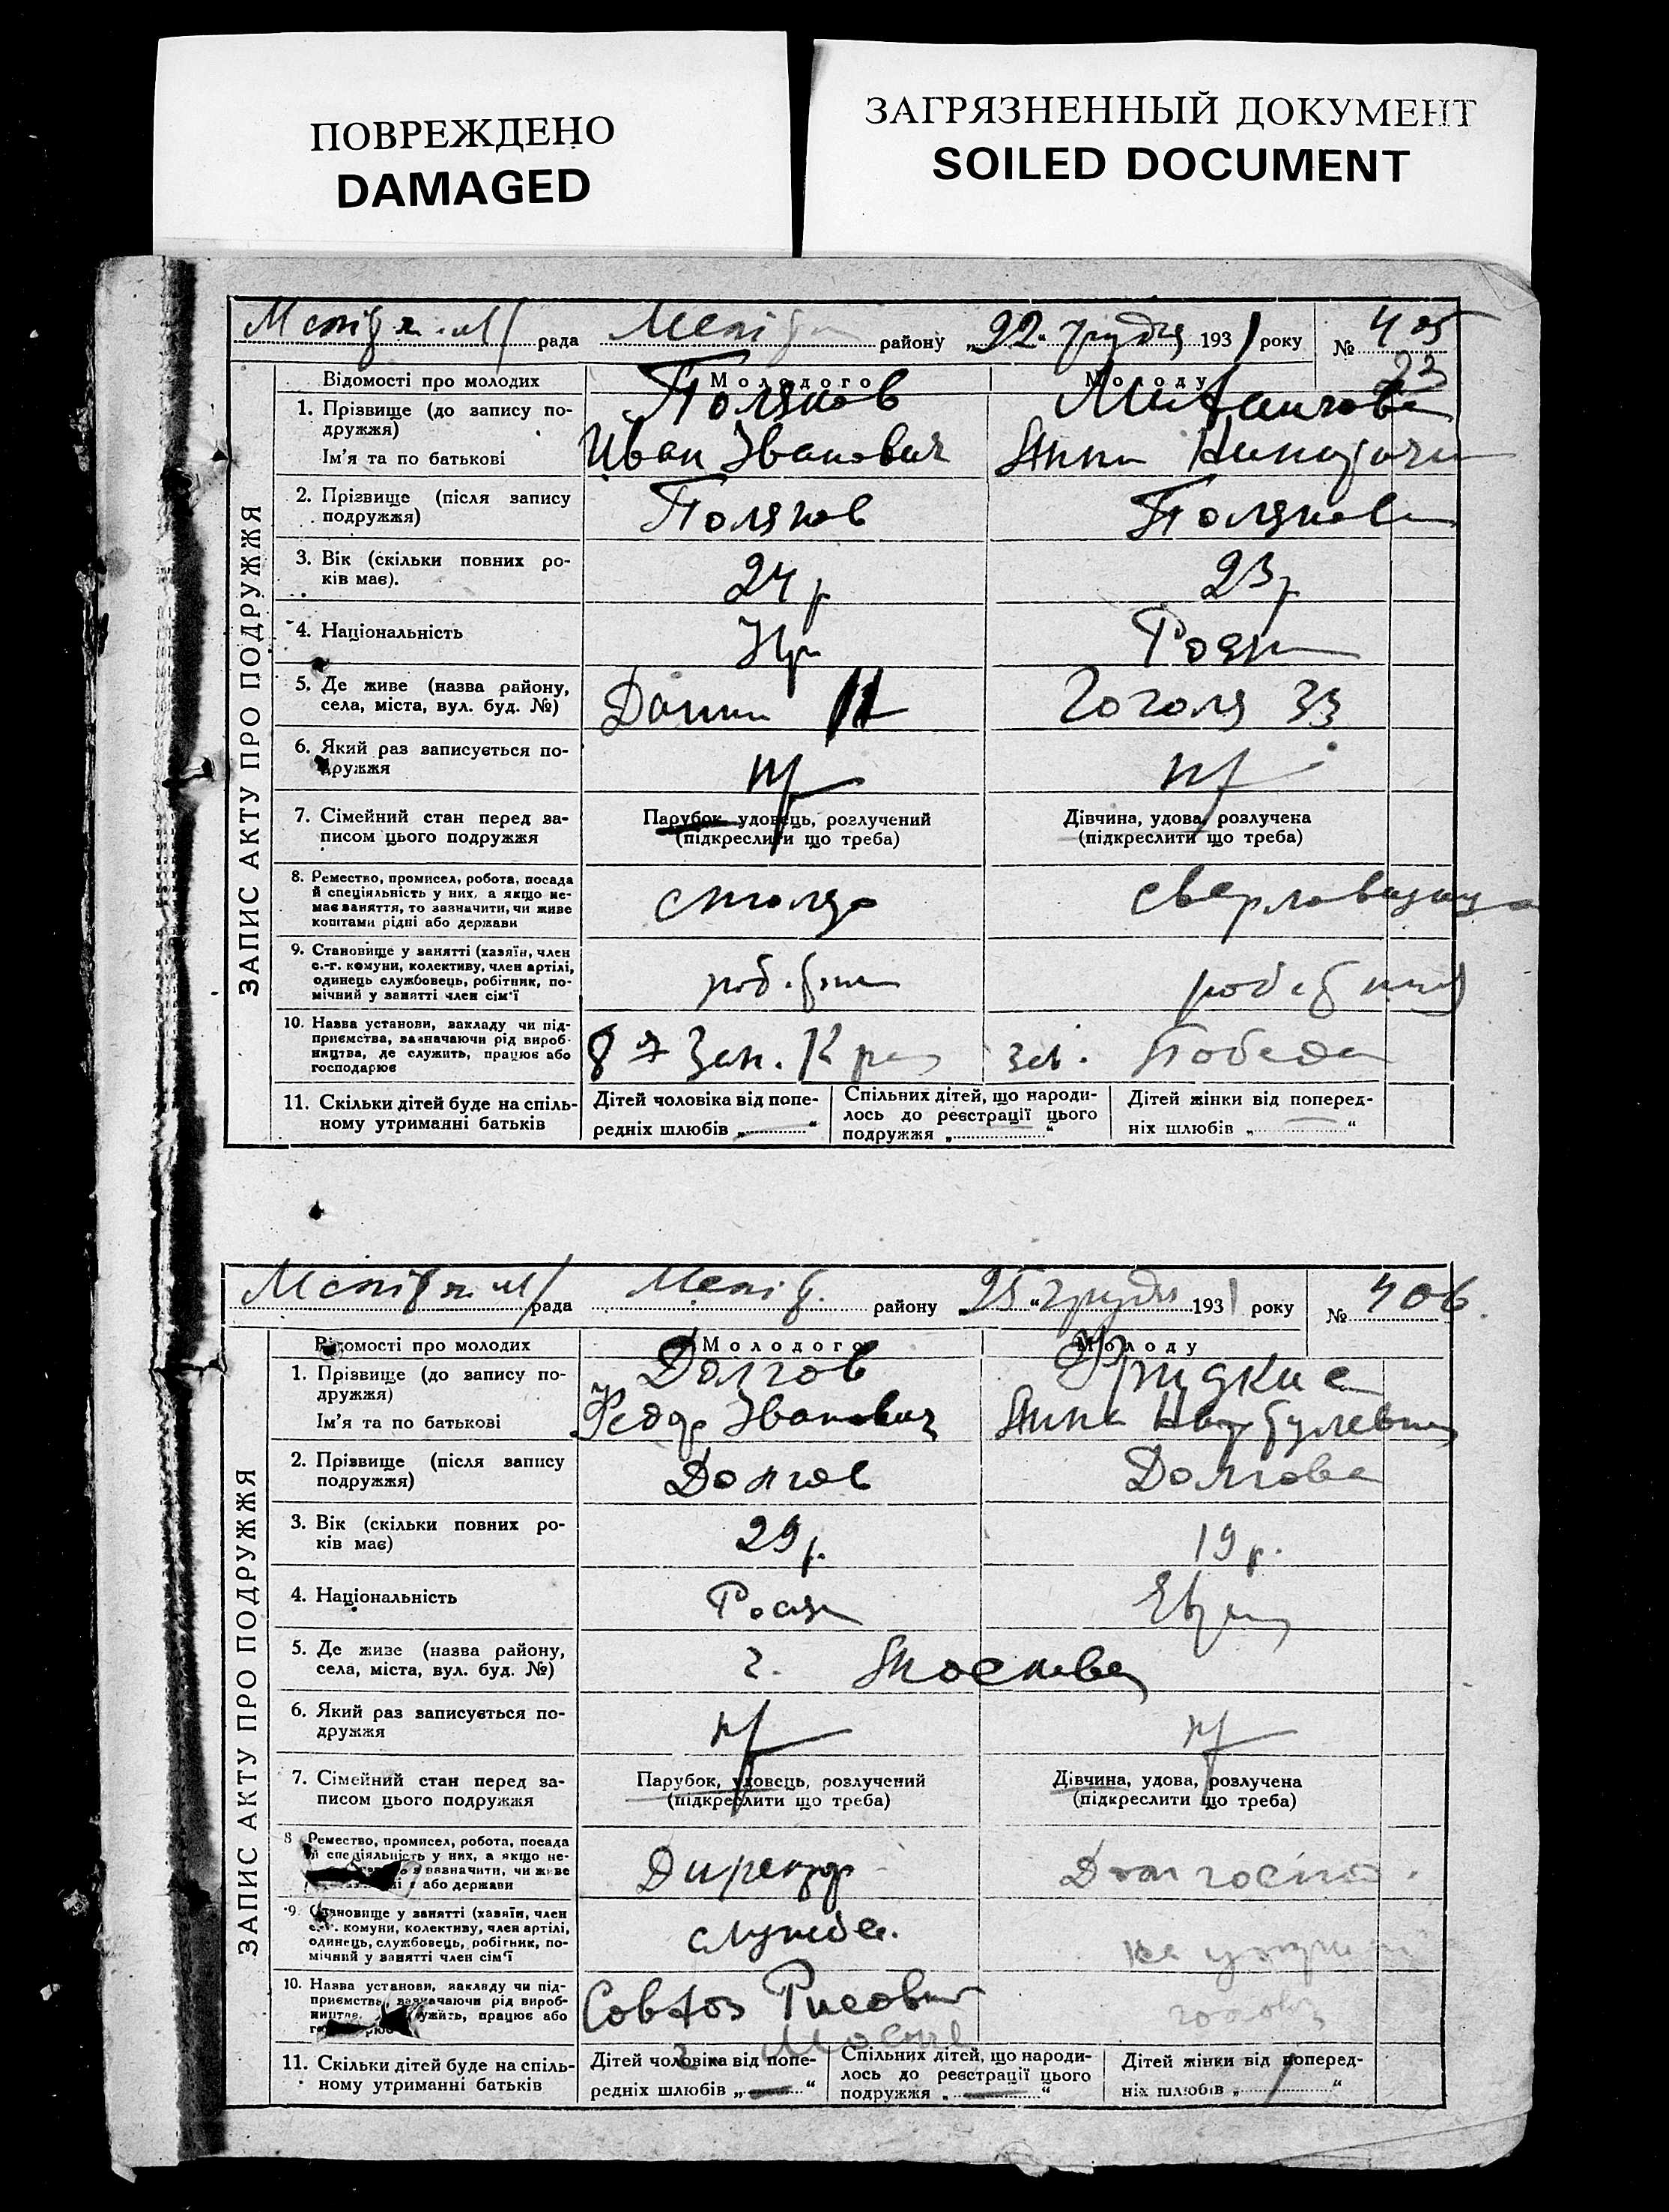 ПОВРЕЖДЕНО
DAMAGED
ЗАГРЯЗНЕННЫЙ ДОКУМЕНТ
SOILED DOCUMENT
ЗАПИС АКТУ ПРО ПОДРУЖЖЯ
рада району „22. грудня 1931 року № 405
23
Відомості про молодих Молодого Молоду
1. Прізвище (до запису по- Поляков
дружжя)
Ім'я та по батькові Иван Іванович Анна
2. Прізвище (після запису Поляков Полякова
подружжя)
3. Вік (скільки повних ро- 24 р 23 р
ків має).
4. Національність Укр Росян
5. Де живе (назва району, Гоголя 33
села, міста, вул. буд. №)
6. Який раз записується по-
дружжя
7. Сімейний стан перед за- Парубок, удовець, розлучений Дівчина, удова, розлучена
писом цього подружжя (підкреслити що треба) (підкреслити що треба)
8. Ремество, промисел, робота, посада
й спеціяльність у них, а якщо не- столяр
має заняття, то зазначити, чи живе
коштами рідні або держави
9. Становище у занятті (хазяїн, член
с.-г. комуни, колективу, член артілі,
одинець службовець, робітник, по-
мічний у занятті член сім'ї
10. Назва установи, закладу чи під-
приємства, зазначаючи рід вироб- зав. Победа
ництва, де служить, працює або
господарює
11. Скільки дітей буде на спіль- Дітей чоловіка від попе- Спільних дітей, що народи- Дітей жінки від поперед-
ному утриманні батьків редніх шлюбів „ “ лось до реєстрації цього ніх шлюбів „ “
подружжя „ “
ЗАПИС АКТУ ПРО ПОДРУЖЖЯ
рада району 25 „грудня 1931 року № 406.
Відомості про молодих Молодого Молоду
1. Прізвище (до запису по- Долгов
дружжя)
Ім'я та по батькові Федор Іванович Анна
2. Прізвище (після запису Долгов Долгова
подружжя)
3. Вік (скільки повних ро- 29 р. 19 р.
ків має)
4. Національність Росян Евр
5. Де живе (назва району, г. Москва
села, міста, вул. буд. №)
6. Який раз записується по-
дружжя
7. Сімейний стан перед за- Парубок, удовець, розлучений Дівчина, удова, розлучена
писом цього подружжя (підкреслити що треба) (підкреслити що треба)
8 Ремество, промисел, робота, посада
й спеціяльність у них, а якщо не- Директор
зазначити, чи живе
або держави
9. Становище у занятті (хазяїн, член
с.-г. комуни, колективу, член артілі, служб.
одинець, службовець, робітник, по-
мічний у занятті член сім'ї
10. Назва установи, закладу чи під-
приємства, зазначаючи рід вироб- Совхоз
працює або
11. Скільки дітей буде на спіль- Дітей чоловіка від попе- Спільних дітей, що народи- Дітей жінки від поперед-
ному утриманні батьків редніх шлюбів „ “ лось до реєстрації цього ніх шлюбів „ “
подружжя „ “